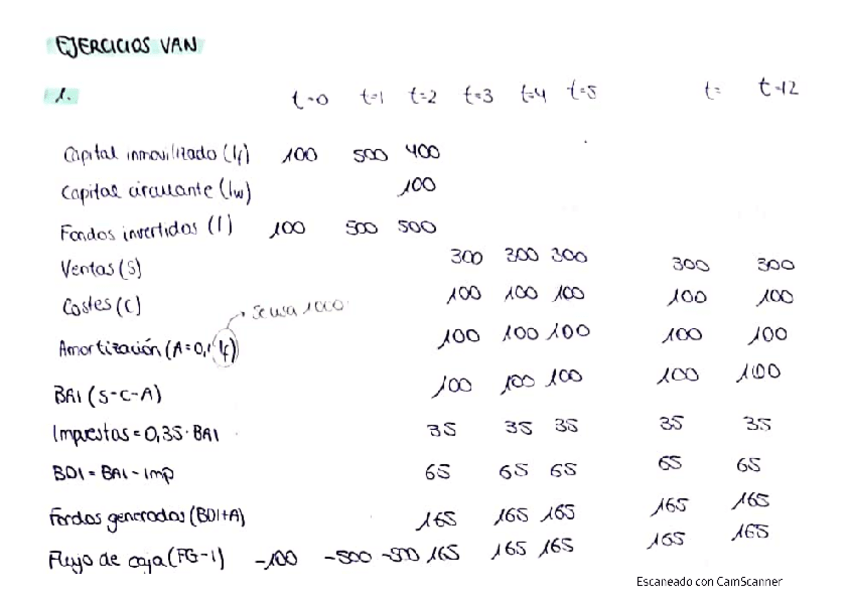 EJERCICIOS VAN
1. t=0 t=1 t=2 t=3 t=4 t=5 t= t=12
Capital inmovilizado (If) 100 500 400
Capital circulante (Iw) 100
Fondos invertidos (I) 100 500 500
Ventas (S) 300 300 300 300 300
Costes (C) 100 100 100 100 100
se usa 1000
Amortización (A=0,1 If) 100 100 100 100 100
BAI (S-C-A) 100 100 100 100 100
Impuestos = 0,35 · BAI 35 35 35 35 35
BDI = BAI - Imp 65 65 65 65 65
Fondos generados (BDI+A) 165 165 165 165 165
Flujo de caja (FG-I) -100 -500 -500 165 165 165 165 165
Escaneado con CamScanner